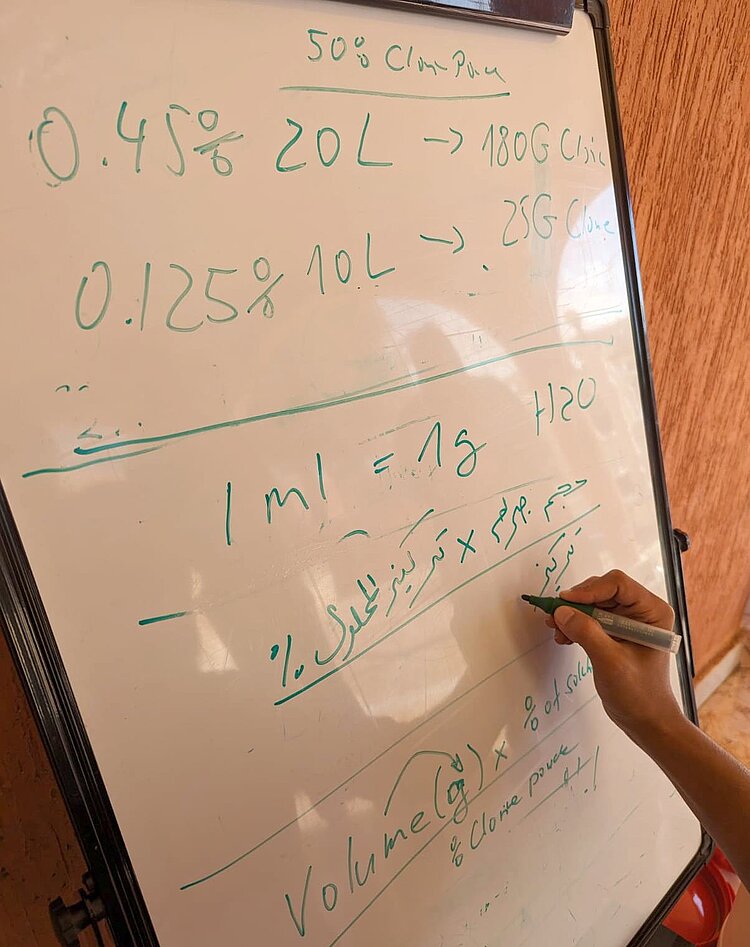 50% Clorine Powde
0.45% 20L → 180G Clorine
0.125% 10L → 25G Clorine
1 ml = 1g H2O
حجم جرام × تركيز المحلول %
تركيز
Volume (g) × % of solut
% Clorine powde